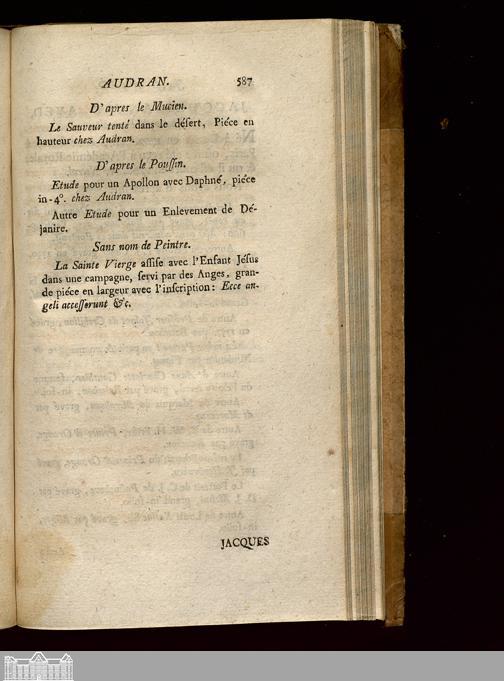 AUDRAN. 587
D'apres le Mucien.
Le Sauveur tenté dans le désert, Piéce en
hauteur chez Audran.
D'apres le Poussin.
Etude pour un Apollon avec Daphné, piéce
in-4°. chez Audran.
Autre Etude pour un Enlevement de Dé-
janire.
Sans nom de Peintre.
La Sainte Vierge assise avec l'Enfant Jésus
dans une campagne, servi par des Anges, gran-
de piéce en largeur avec l'inscription: Ecce an-
geli accesserunt &c.
JACQUES